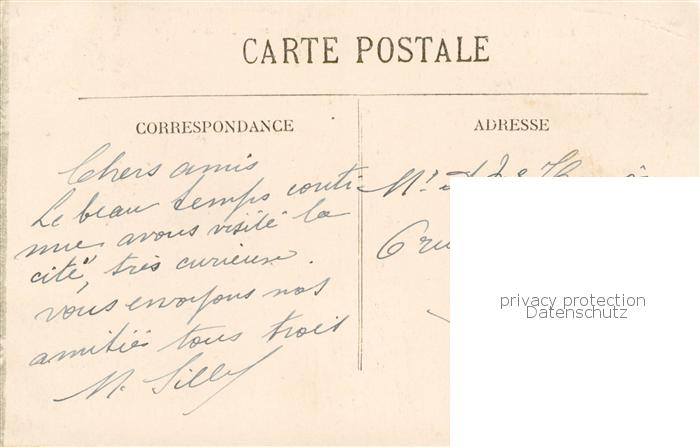 CARTE POSTALE
CORRESPONDANCE
ADRESSE
Chers amis
Le beau temps conti
nue, avons visité la
cité, très curieuse.
vous envoyons nos
amitiés tous trois
M. Silly
Mr
privacy protection
Datenschutz